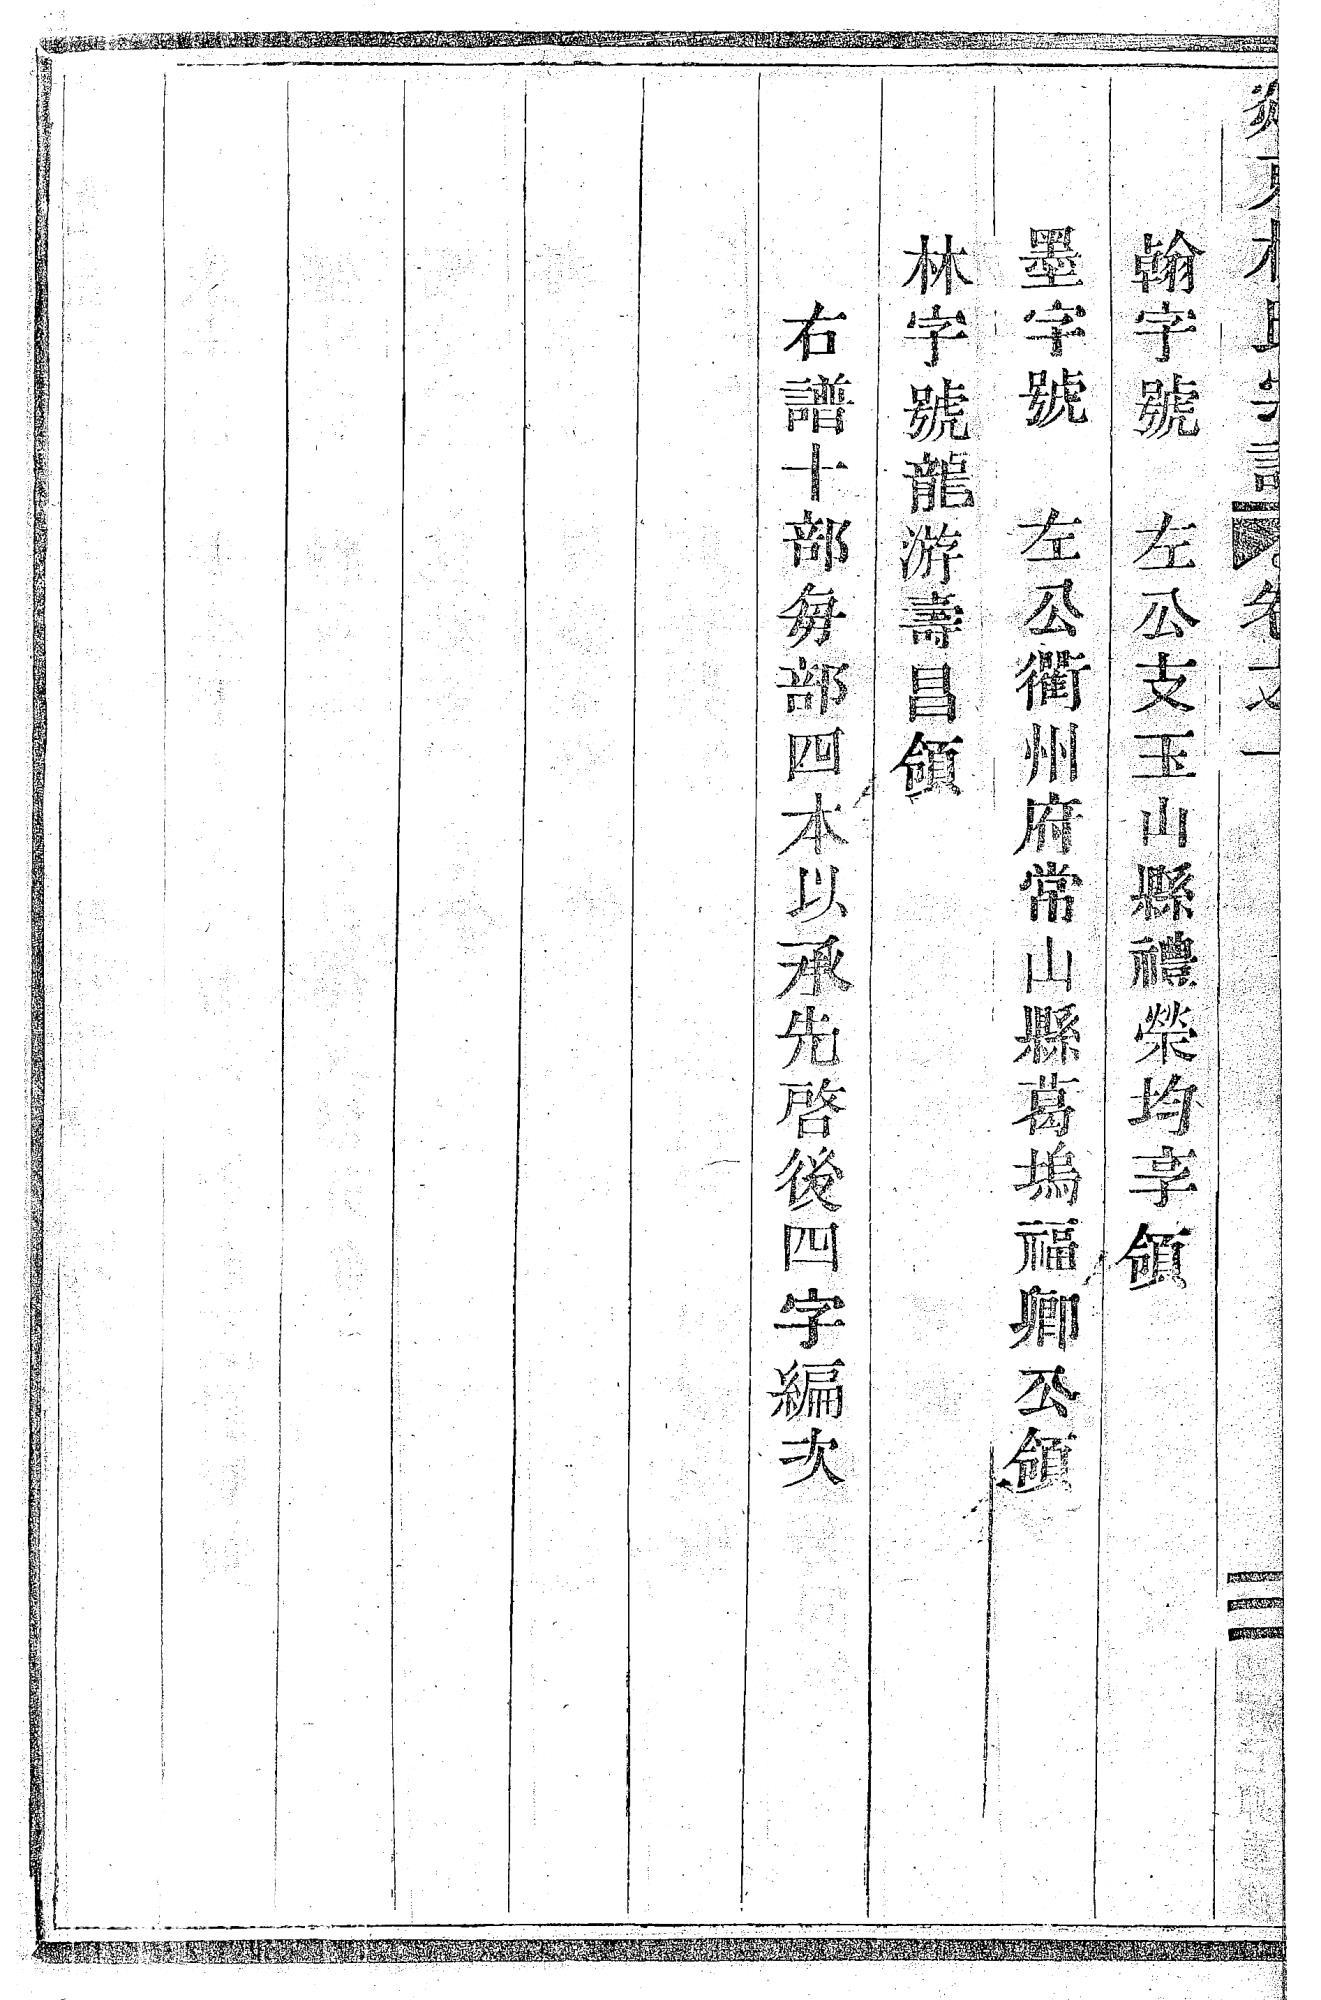 卷之一
翰字號　左公支玉山縣禮榮均享領
墨字號　左公衢州府常山縣葛塢福卿公領
林字號龍游壽昌領
右譜十部每部四本以承先啓後四字編次